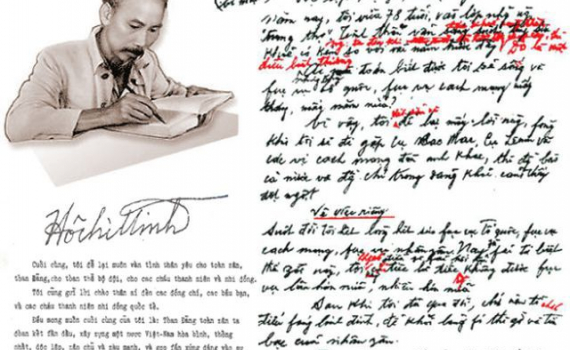 Năm nay, tôi vừa 78 tuổi, vào lớp những
"trung thọ". Tinh thần vẫn
điều bình thường
toán biết được tôi và
fục vụ tổ quốc, fục vụ cách mạng mấy
năm nữa?
Vì vậy, tôi để lại mấy lời này, fòng
khi tôi sẽ đi gặp cụ Các Mác, cụ Lênin và
các vị cách mạng đàn anh khác, thì đồng bào
cả nước và đồng chí trong Đảng khỏi cảm thấy
đột ngột
Về việc riêng
Suốt đời tôi hết lòng hết sức fục vụ tổ quốc, fục vụ
cách mạng, fục vụ nhân dân. Nay fải từ biệt
thế giới này, tôi tiếc là tiếc không được fục
vụ lâu hơn nữa, nhiều hơn nữa
Sau khi tôi đã qua đời, chớ nên tổ chức
điếu fúng linh đình, để khỏi lãng fí thì giờ và tiền
bạc của nhân dân.
HồchíMinh
Cuối cùng, tôi để lại muôn vàn tình thân yêu cho toàn dân,
toàn Đảng, cho toàn thể bộ đội, cho các cháu thanh niên và nhi đồng.
Tôi cũng gửi lời chào thân ái đến các đồng chí, các bầu bạn,
và các cháu thanh niên nhi đồng quốc tế.
Điều mong muốn cuối cùng của tôi là: Toàn Đảng toàn dân ta
đoàn kết phấn đấu, xây dựng một nước Việt-Nam hòa bình, thống
nhất, độc lập, dân chủ và giàu mạnh, và góp phần xứng đáng vào sự